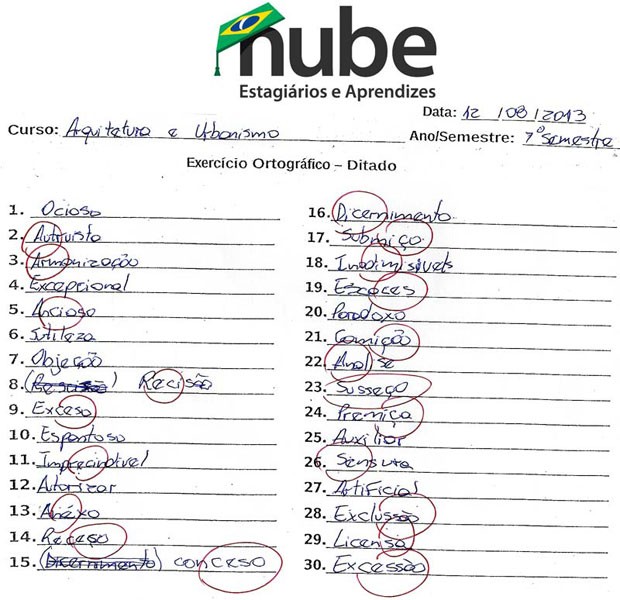 nube
Estagiários e Aprendizes
Data: 12 /08/2013
Curso: Arquitetura e Urbanismo
Ano/Semestre: 7º semestre
Exercício Ortográfico – Ditado
1. Ocioso
2. Autruista
3. Armonização
4. Excepcional
5. Ancioso
6. Sutileza
7. Objeção
8. Recisão
9. Exceso
10. Espantoso
11. Imprecindível
12. Autorizar
13. Anéxo
14. Receso
15. (Dicernimento) conceso
16. Dicernimento
17. Submiço
18. Inadimisíveis
19. Escoces
20. Paradoxo
21. Comição
22. Analise
23. Sussego
24. Premiça
25. Auxiliar
26. Sensura
27. Artificial
28. Exclussão
29. Licensa
30. Excessão